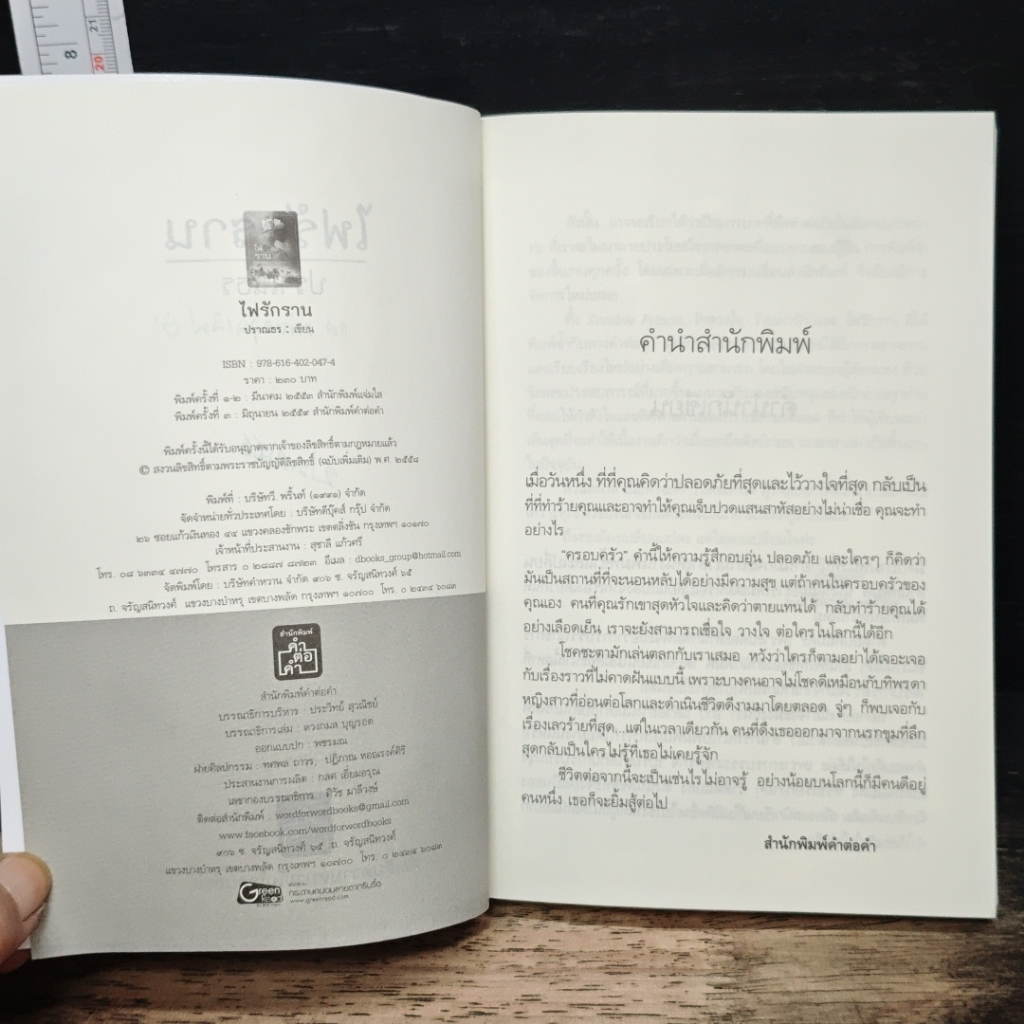 8
21
20
ไฟรักราน
ปราณธร : เขียน
ISBN : 978-616-402-047-4
ราคา : ๒๓๐ บาท
พิมพ์ครั้งที่ ๑-๒ : มีนาคม ๒๕๕๓ สำนักพิมพ์แจ่มใส
พิมพ์ครั้งที่ ๓ : มิถุนายน ๒๕๕๙ สำนักพิมพ์คำต่อคำ
พิมพ์ครั้งนี้ได้รับอนุญาตจากเจ้าของลิขสิทธิ์ตามกฎหมายแล้ว
© สงวนลิขสิทธิ์ตามพระราชบัญญัติลิขสิทธิ์ (ฉบับเพิ่มเติม) พ.ศ. ๒๕๕๘
พิมพ์ที่ : บริษัทวี. พริ้นท์ (๑๙๙๑) จำกัด
จัดจำหน่ายทั่วประเทศโดย : บริษัทดีบุ๊คส์ กรุ๊ป จำกัด
๒๖ ซอยแก้วเงินทอง ๔๔ แขวงคลองชักพระ เขตตลิ่งชัน กรุงเทพฯ ๑๐๑๗๐
เจ้าหน้าที่ประสานงาน : สุชาลี แก้วศรี
โทร. ๐๘ ๖๓๓๔ ๔๗๗๐ โทรสาร ๐ ๒๘๘๗ ๘๗๒๓ อีเมล : dbooks_group@hotmail.com
จัดพิมพ์โดย : บริษัทคำหวาน จำกัด ๙๐๖ ซ. จรัญสนิทวงศ์ ๖๕
ถ. จรัญสนิทวงศ์ แขวงบางบำหรุ เขตบางพลัด กรุงเทพฯ ๑๐๗๐๐ โทร. ๐ ๒๔๓๔ ๖๐๘๓
สำนักพิมพ์
คำ
ต่อ
คำ
สำนักพิมพ์คำต่อคำ
บรรณาธิการบริหาร : ประวิทย์ สุวณิชย์
บรรณาธิการเล่ม : ดวงกมล บุญรอด
ออกแบบปก : พชรมณ
ฝ่ายศิลปกรรม : ทศพล ถาวร, ปฏิภาณ ทอณรงค์สิริ
ประสานงานการผลิต : กลด เอี่ยมอรุณ
เลขากองบรรณาธิการ : ติวัช มาลีวงษ์
ติดต่อสำนักพิมพ์ : wordforwordbooks@gmail.com
www.facebook.com/wordforwordbooks
๙๐๖ ซ. จรัญสนิทวงศ์ ๖๕ ถ. จรัญสนิทวงศ์
แขวงบางบำหรุ เขตบางพลัด กรุงเทพฯ ๑๐๗๐๐ โทร. ๐ ๒๔๓๔ ๖๐๘๓
Green
Read
กระดาษถนอมสายตากรีนรี้ด
www.greenread.com
คำนำสำนักพิมพ์
เมื่อวันหนึ่ง ที่ที่คุณคิดว่าปลอดภัยที่สุดและไว้วางใจที่สุด กลับเป็น
ที่ที่ทำร้ายคุณและอาจทำให้คุณเจ็บปวดแสนสาหัสอย่างไม่น่าเชื่อ คุณจะทำ
อย่างไร
"ครอบครัว" คำนี้ให้ความรู้สึกอบอุ่น ปลอดภัย และใครๆ ก็คิดว่า
มันเป็นสถานที่ที่จะนอนหลับได้อย่างมีความสุข แต่ถ้าคนในครอบครัวของ
คุณเอง คนที่คุณรักเขาสุดหัวใจและคิดว่าตายแทนได้ กลับทำร้ายคุณได้
อย่างเลือดเย็น เราจะยังสามารถเชื่อใจ วางใจ ต่อใครในโลกนี้ได้อีก
โชคชะตามักเล่นตลกกับเราเสมอ หวังว่าใครก็ตามอย่าได้เจอะเจอ
กับเรื่องราวที่ไม่คาดฝันแบบนี้ เพราะบางคนอาจไม่โชคดีเหมือนกับทิพรดา
หญิงสาวที่อ่อนต่อโลกและดำเนินชีวิตดีงามมาโดยตลอด จู่ๆ ก็พบเจอกับ
เรื่องเลวร้ายที่สุด...แต่ในเวลาเดียวกัน คนที่ดึงเธอออกมาจากนรกขุมที่ลึก
สุดกลับเป็นใครไม่รู้ที่เธอไม่เคยรู้จัก
ชีวิตต่อจากนี้จะเป็นเช่นไรไม่อาจรู้ อย่างน้อยบนโลกนี้ก็มีคนดีอยู่
คนหนึ่ง เธอก็จะยิ้มสู้ต่อไป
สำนักพิมพ์คำต่อคำ